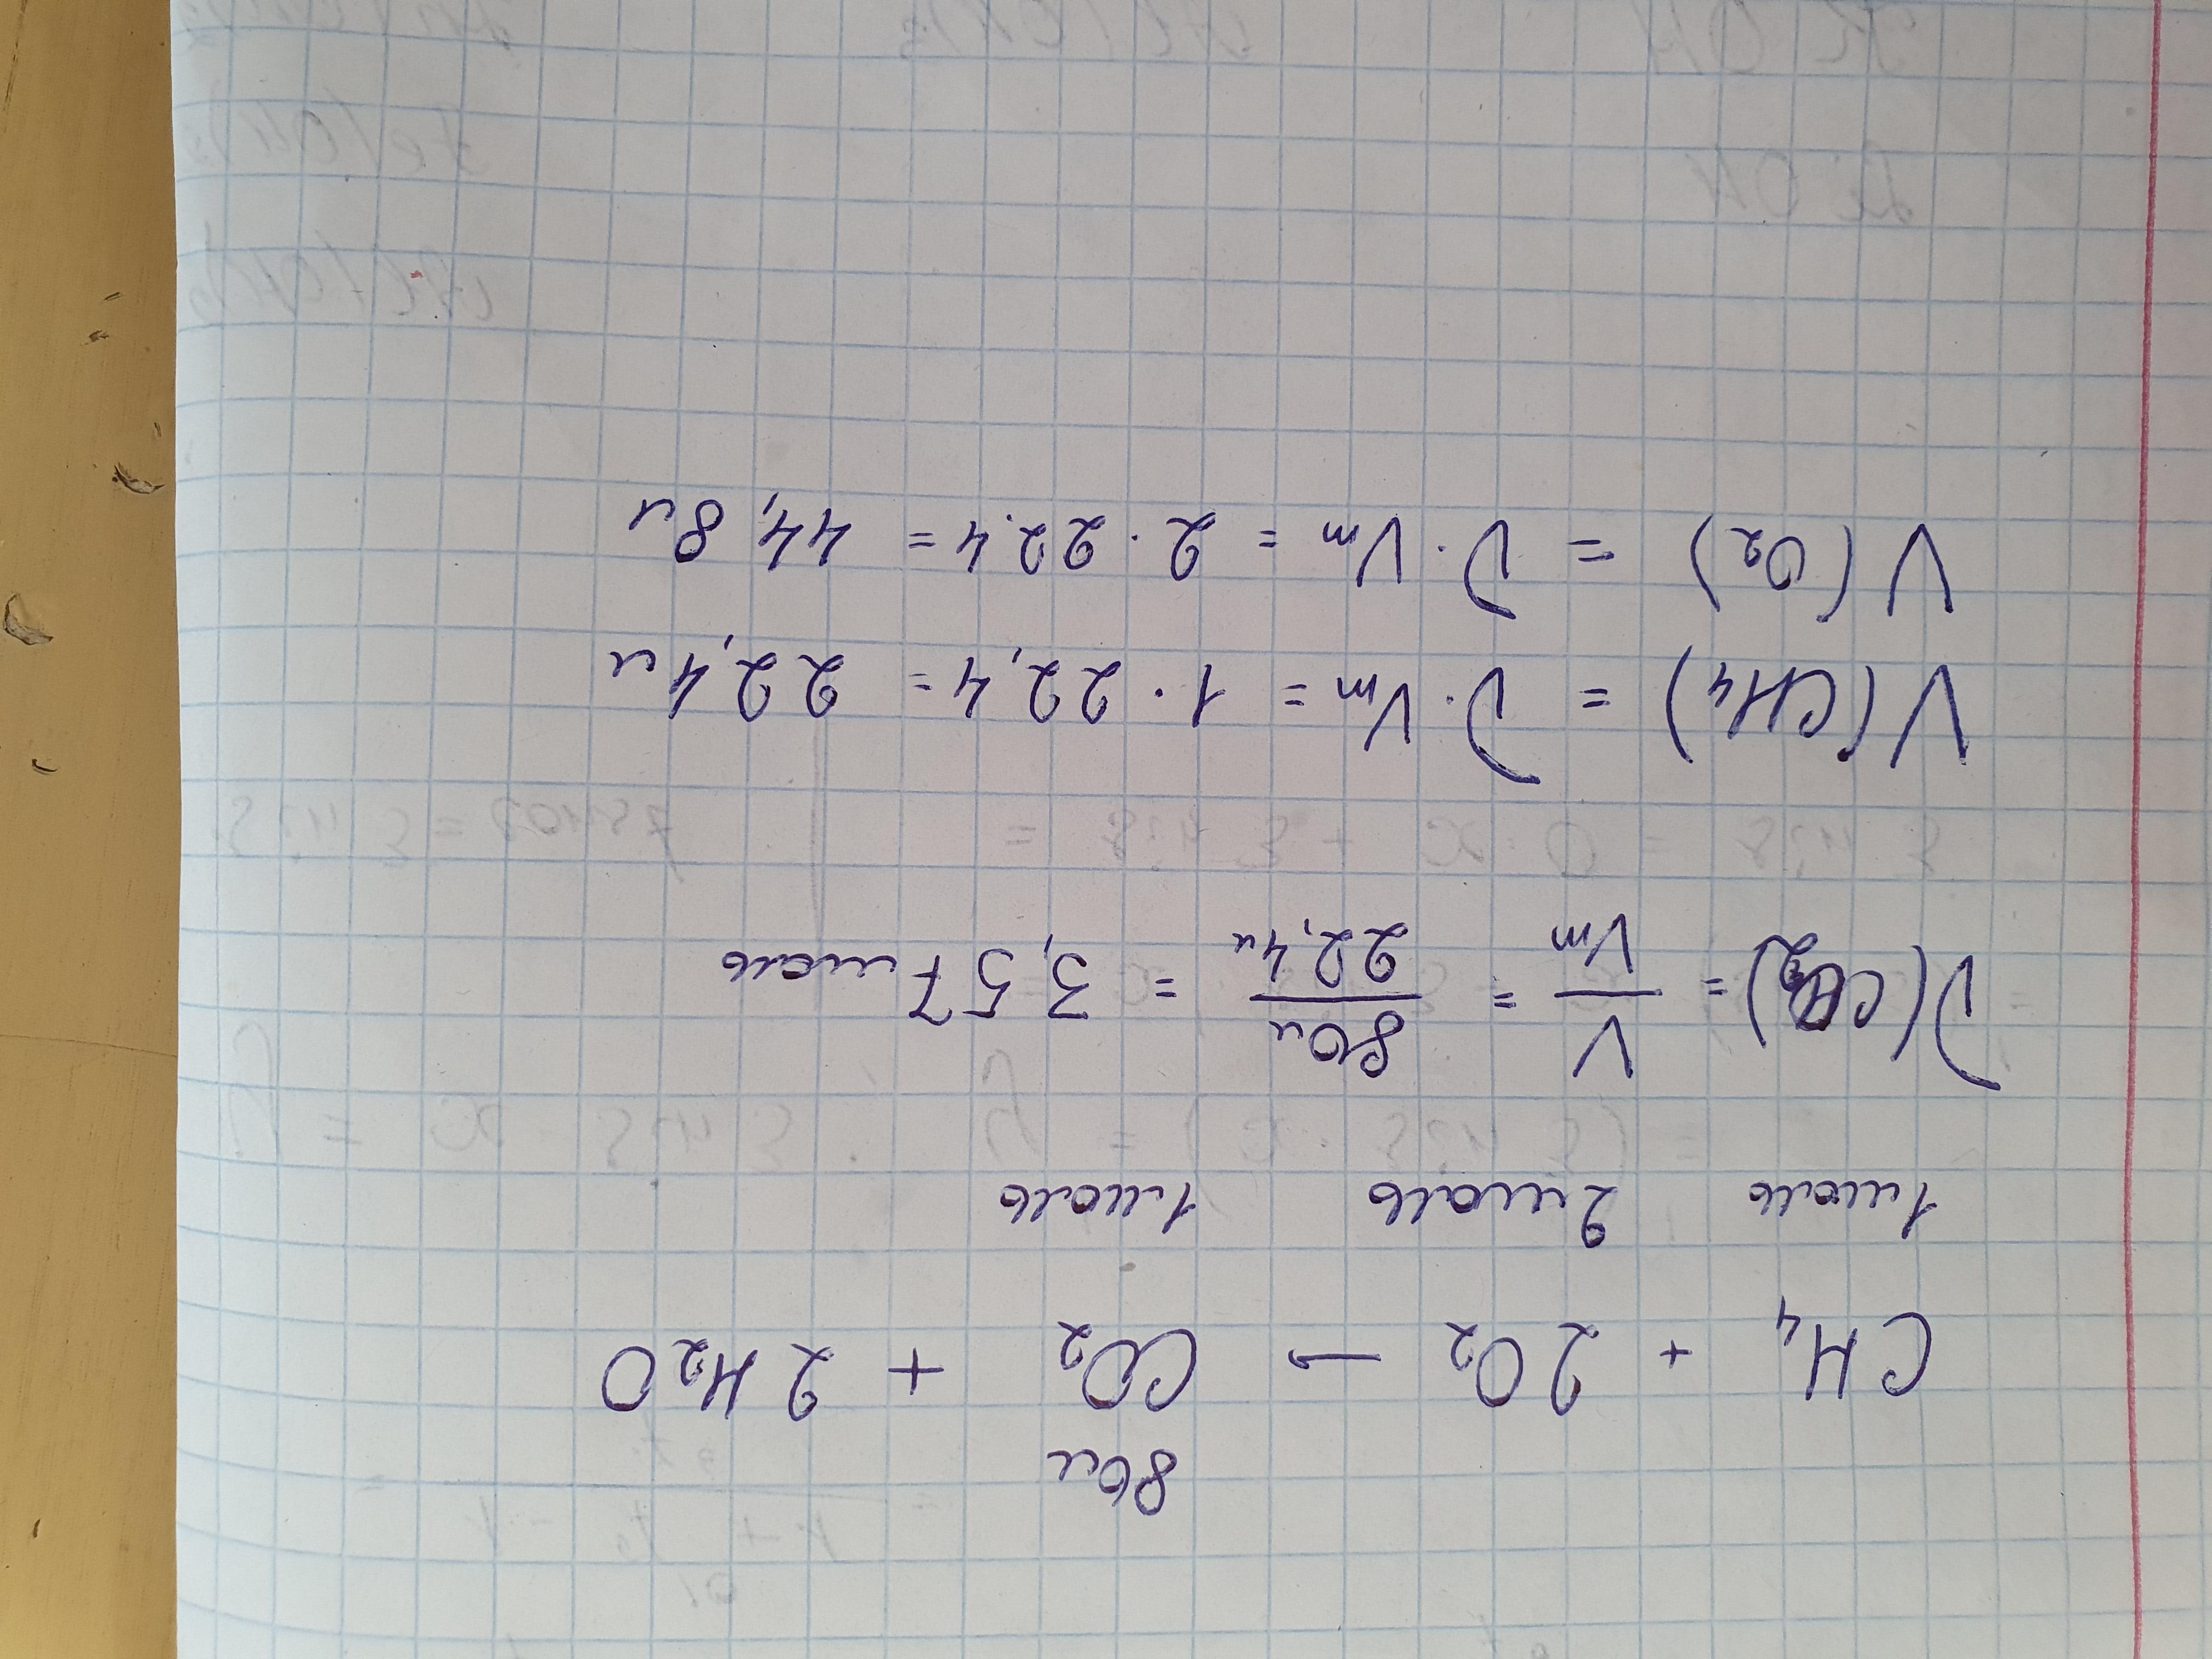 80л
CH₄ + 2O₂ → CO₂ + 2H₂O
1моль 2моль 1моль
ν(CO₂) = V/Vm = 80л/22,4л = 3,57моль
V(CH₄) = ν · Vm = 1 · 22,4 = 22,4л
V(O₂) = ν · Vm = 2 · 22.4 = 44,8л